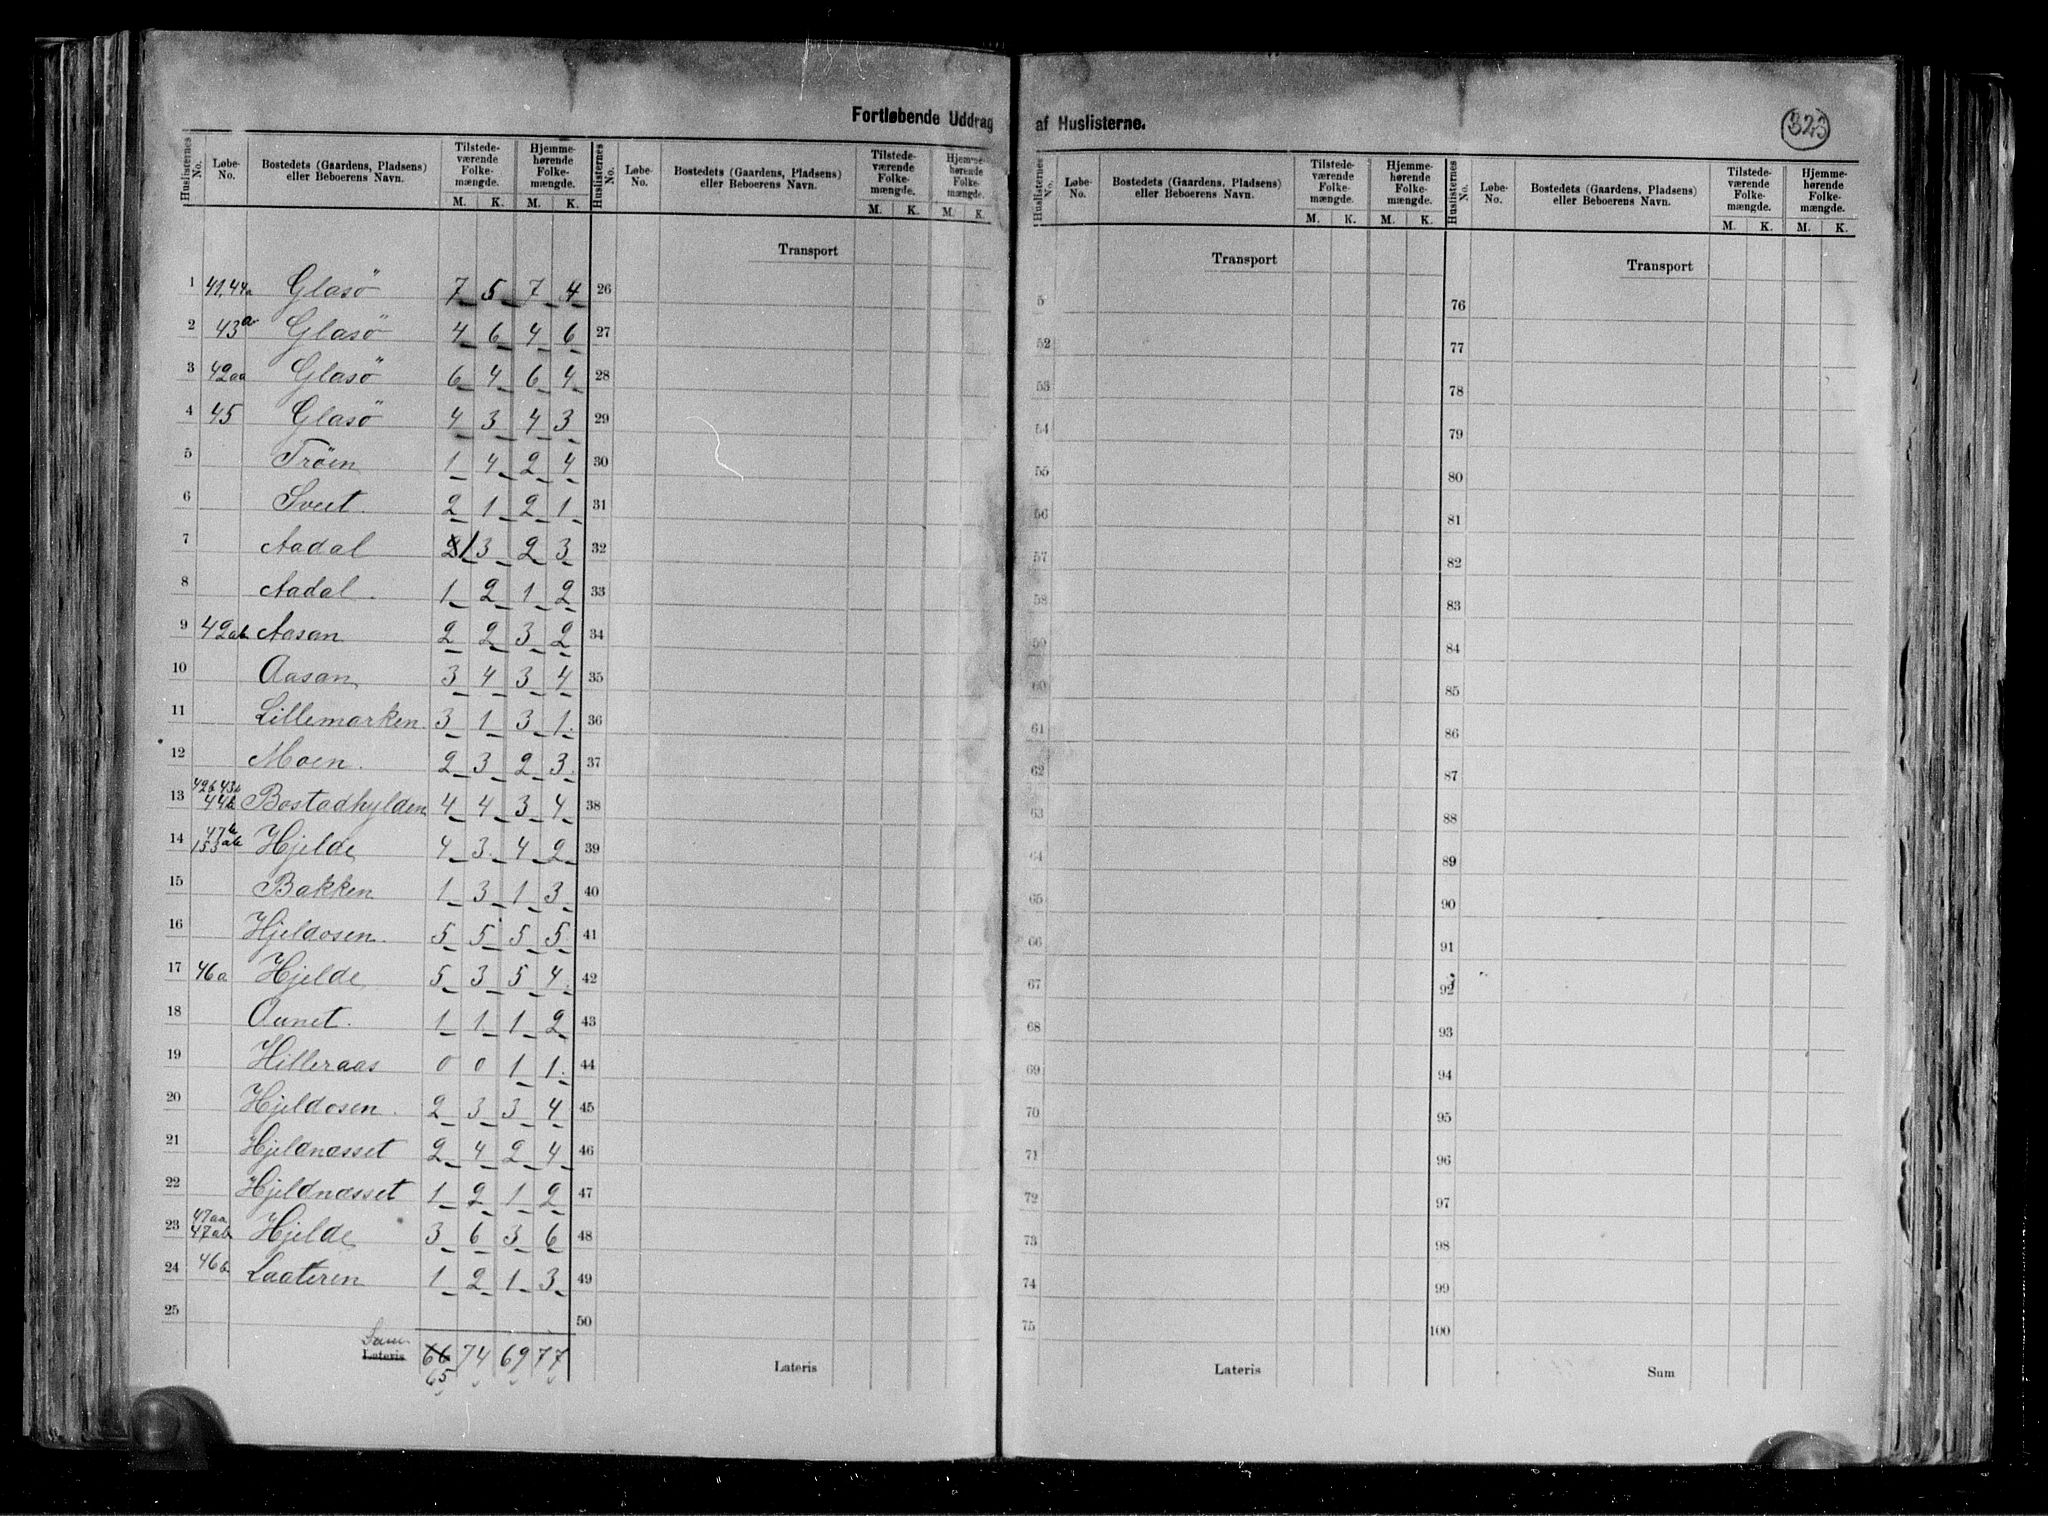 Fortløbende Uddrag af Huslisterne.
323
Huslisternes No. | Løbe-No. | Bostedets (Gaardens, Pladsens) eller Beboerens Navn. | Tilstede-værende Folke-mængde. M. K. | Hjemme-hørende Folke-mængde. M. K.
Transport
1 41,44a Glasö 7 5 7 4
2 43a Glasö 4 6 4 6
3 42aa Glasö 6 4 6 4
4 45 Glasö 4 3 4 3
5 Tröen 1 4 2 4
6 Sveet. 2 1 2 1
7 Aadal 2 1 3 2 3
8 Aadal. 1 2 1 2
9 42ab Aasan 2 2 3 2
10 Aasan 3 4 3 4
11 Lillemarken 3 1 3 1
12 Moen. 2 3 2 3
13 42b 43b 44b Bostadhylden 4 4 3 4
14 47b 153ab Hjelde 4 3 4 2
15 Bakken 1 3 1 3
16 Hjeldosen. 5 5 5 5
17 46a Hjelde 5 3 5 4
18 Aunet. 1 1 1 2
19 Hilleraas 0 0 1 1
20 Hjeldosen. 2 3 3 4
21 Hjeldnæsset 2 4 2 4
22 Hjeldnæsset 1 2 1 2
23 47aa 47ab Hjelde 3 6 3 6
24 46b Laateren 1 2 1 3
25
Sum
Lateris 66 74 69 77
65
Huslisternes No. | Løbe-No. | Bostedets (Gaardens, Pladsens) eller Beboerens Navn. | Tilstede-værende Folke-mængde. M. K. | Hjemme-hørende Folke-mængde. M. K.
Transport
26
27
28
29
30
31
32
33
34
35
36
37
38
39
40
41
42
43
44
45
46
47
48
49
50
Lateris
Huslisternes No. | Løbe-No. | Bostedets (Gaardens, Pladsens) eller Beboerens Navn. | Tilstede-værende Folke-mængde. M. K. | Hjemme-hørende Folke-mængde. M. K.
Transport
5
52
53
54
55
56
57
58
59
60
61
62
63
64
65
66
67
68
69
70
71
72
73
74
75
Lateris
Huslisternes No. | Løbe-No. | Bostedets (Gaardens, Pladsens) eller Beboerens Navn. | Tilstede-værende Folke-mængde. M. K. | Hjemme-hørende Folke-mængde. M. K.
Transport
76
77
78
79
80
81
82
83
84
85
86
87
88
89
90
91
92
93
94
95
96
97
98
99
100
Sum